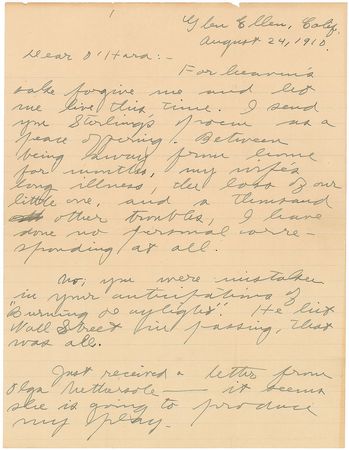 1
Glen Ellen, Calif.
August 24, 1910.
Dear O'Hara:-
For heaven's
sake forgive me and let
me live this time. I send
you Sterling's poem as a
peace offering. Between
being away from home
for months, my wife's
long illness, the loss of our
little one, and a thousand
other troubles, I have
done no personal corre-
sponding at all.
No, you were mistaken
in your anticipations of
"Burning Daylight". He hit
Wall Street in passing, that
was all.
Just received a letter from
Olga Nethersole — it seems
she is going to produce
my play.